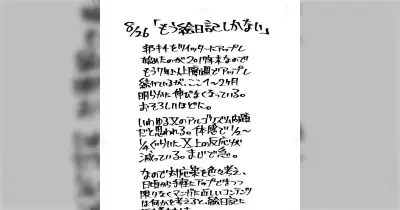 8/26「もう絵日記しかない」
邪キチをツイッターにアップし
始めたのが2017年末なので
もう7年以上隔週でアップし
続けているが、ここ1〜2ヶ月
明らかに伸びなくなっている。
おそろしいほどに。
いわゆるXのアルゴリズム問題
だと思われる。体感で1/3〜
1/4くらいに、X上の反応が
減っている。まじで急。
なので対応策を色々考え、
日頃から手軽にアップできつつ
限りなくマンガに近しいコンテンツ
は何かを考えると、絵日記に